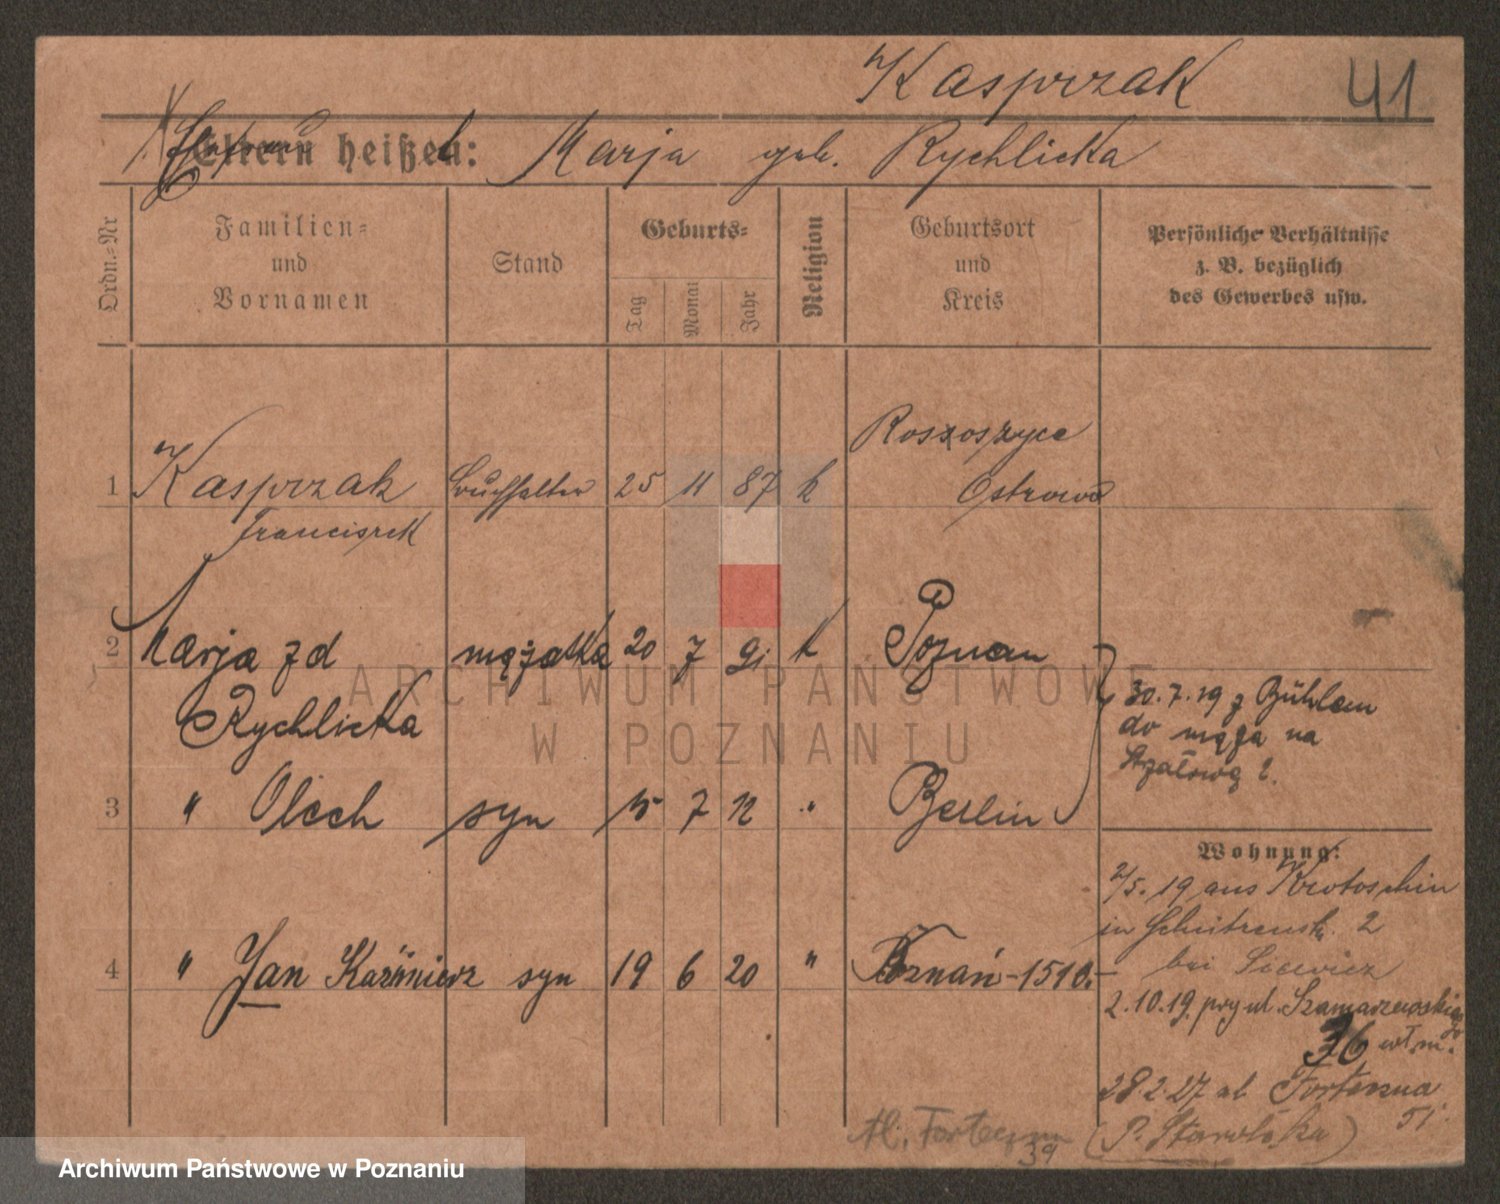 Kasprzak 41
Eltern heißen: Marja geb. Rychlicka
Ordn.=Nr
Familien=
und
Vornamen
Stand
Geburts=
Tag
Monat
Jahr
Religion
Geburtsort
und
Kreis
Persönliche Verhältnisse
z. B. bezüglich
des Gewerbes usw.
Roszoszyce
1 Kasprzak Buchhalter 25 11 87 k Ostrowo
Franciszek
2 Marja zd mężatka 20 7 91 k Poznan
Rychlicka
30.7.19 z Bühlau
do męża na
3 " Olech syn 15 7 12 " Berlin
Wohnung:
2/5.19 aus Krotoschin
in Schützenstr. 2
bei
4 " Jan Kaźmierz syn 19 6 20 " Poznań-1510.-
2.10.19. przy ul. Szamarzewskiego
36 wł.m.
28.2.27 ul. Forteczna
51
ul. Forteczna (P. Starołęka)
39
ARCHIWUM PAŃSTWOWE
W POZNANIU
Archiwum Państwowe w Poznaniu